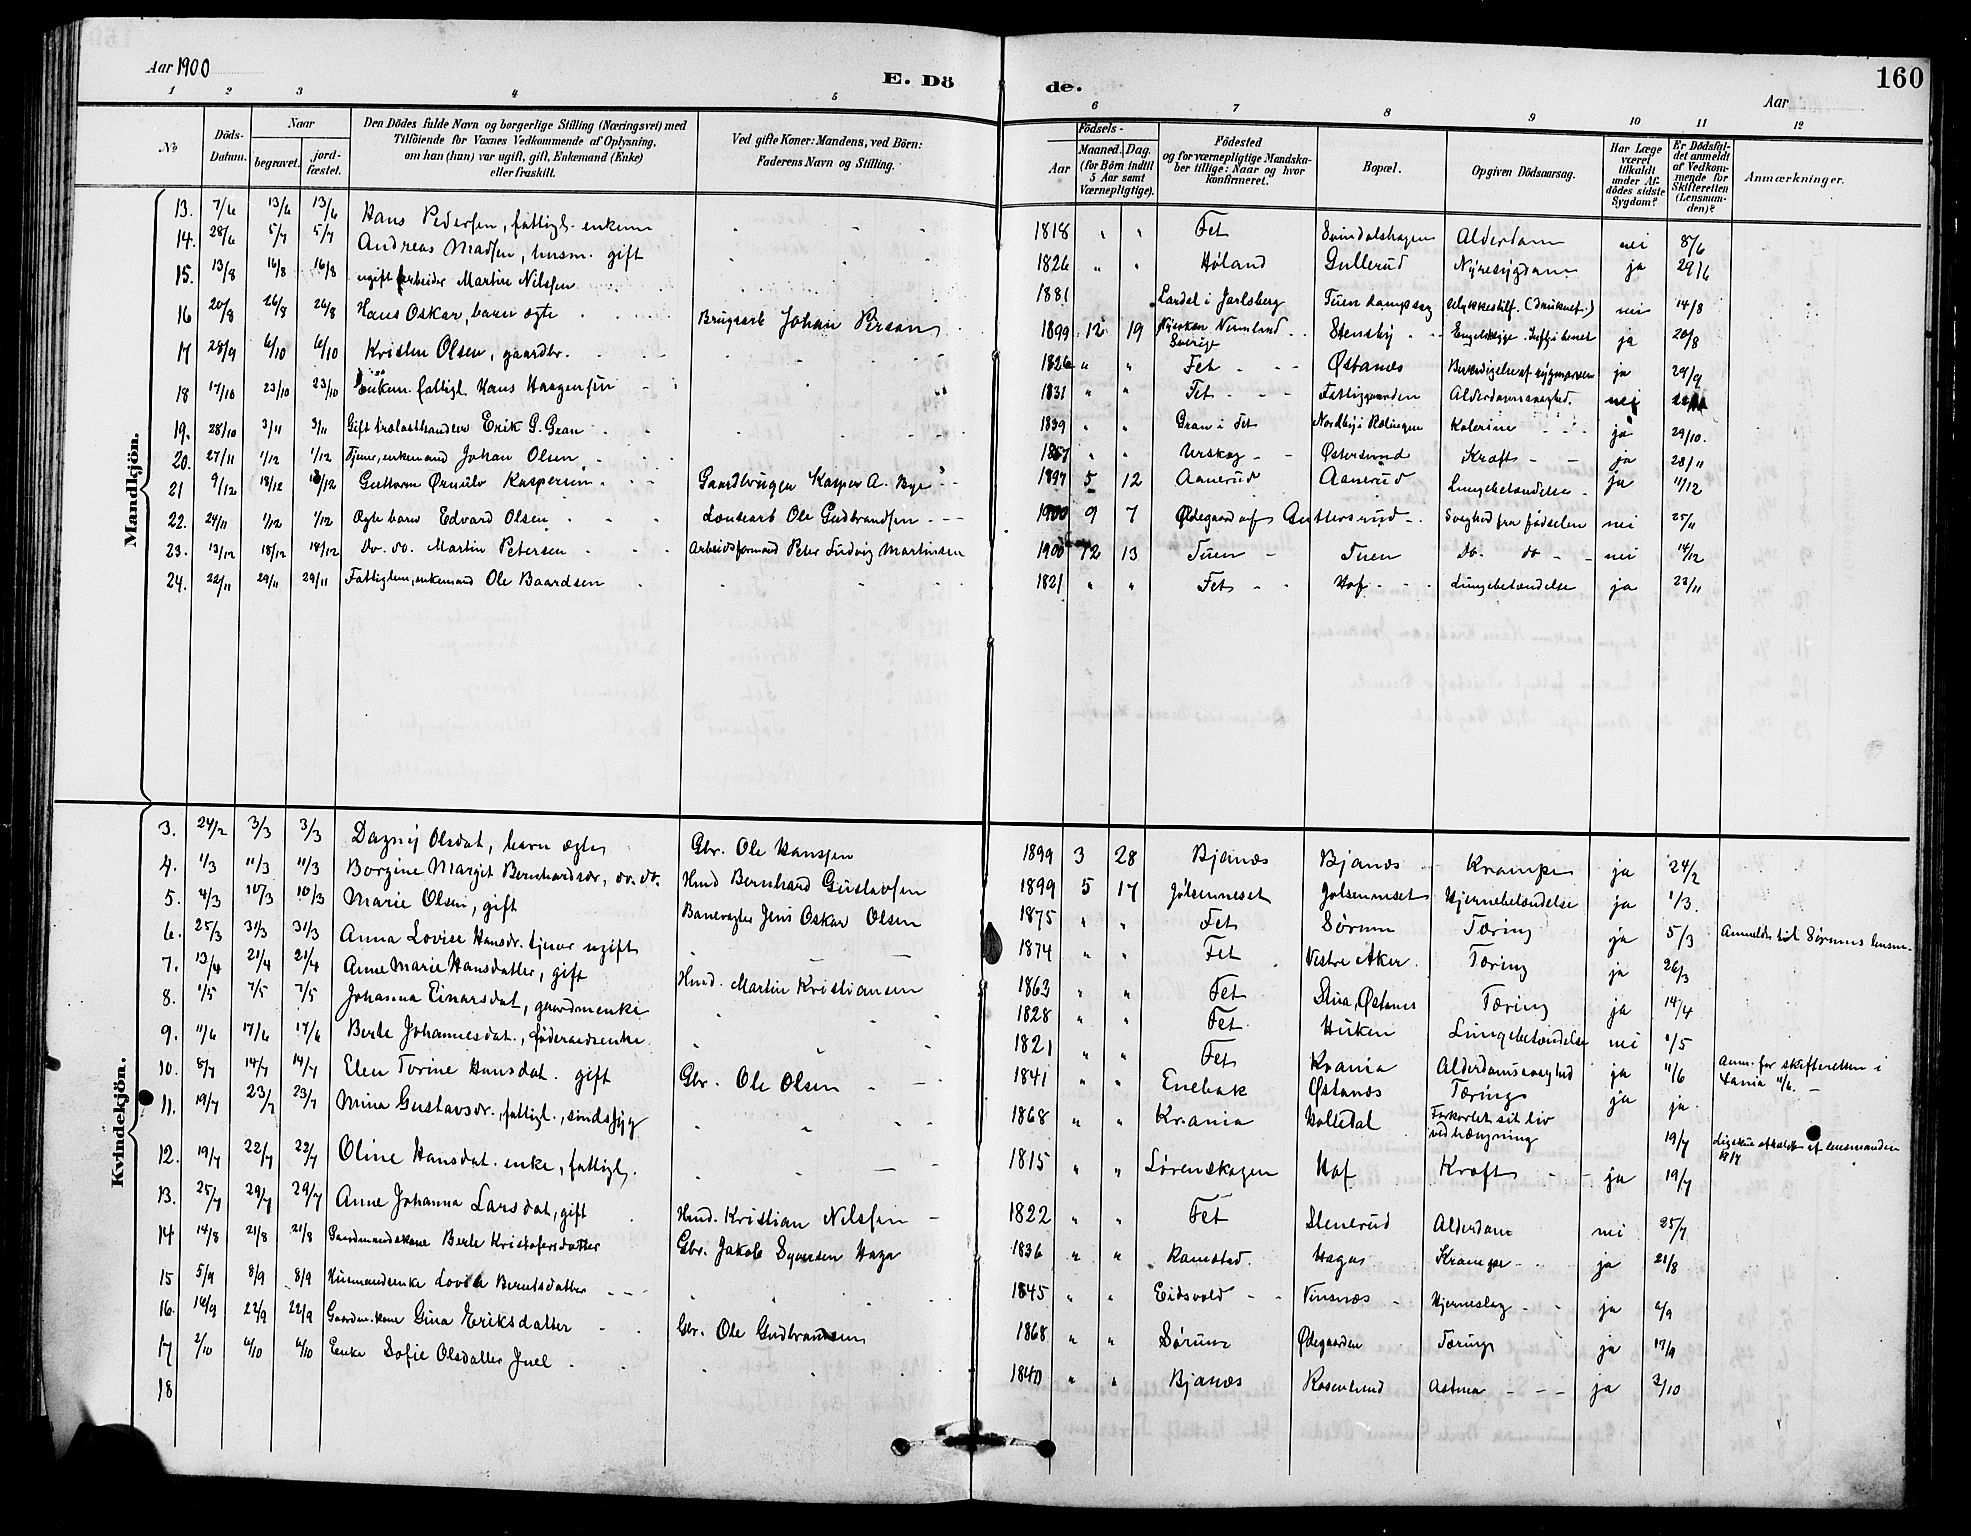 Aar 1900
E. Dö
de.
Aar
160
1 2 3 4 5 6 7 8 9 10 11 12
No
Döds-Datum.
Naar
begravet.
jord-fæstet.
Den Dödes fulde Navn og borgerlige Stilling (Næringsvei) med
Tilföiende for Voxnes Vedkommende af Oplysning,
om han (hun) var ugift, gift, Enkemand (Enke)
eller fraskilt.
Ved gifte Koner: Mandens, ved Börn:
Faderens Navn og Stilling.
Födsels-
Aar
Maaned. Dag.
(for Börn indtil
5 Aar samt
Værnepligtige).
Födested
og for værnepligtige Mandska-
ber tillige: Naar og hvor
konfirmeret.
Bopæl.
Opgiven Dödsaarsag.
Har Læge
været
tilkaldt
under Af-
dödes sidste
Sygdom?
Er Dödsfal-
det anmeldt
af Vedkom-
mende for
Skifteretten
(Lensman-
den)?
Anmærkninger.
Mandkjön.
13. 7/6 13/6 13/6 Hans Pedersen, fattigl. enkem " 1818 " " Fet Svindalshagen Alderdom nei 8/6
14. 28/6 5/7 5/7 Andreas Madsen, husm. gift " 1826 " " Høland Gullerud Nyresygdom ja 29/6
15. 13/8 16/8 16/8 ugift arbeider Martin Nilssen 1881 Lardal i Jarlsberg Tuen dampsag Ulykkestilf. (druknet.) nei 14/8
16 20/8 26/8 26/8 Hans Oskar, barn ægte Brugsarb Johan Person 1899 12 19 Sverige Stensby Engelsksyge ja 20/8
17 28/9 6/10 6/10 Kristen Olsen, gaardbr. " 1826 " " Fet Østanæs ja 29/9
18 17/10 23/10 23/10 enkem. fattigl. Hans Haagensen " 1831 " " Fet Fattiggaarden Alderdomssvaghed. nei
19. 28/10 3/11 3/11 Gift trælasthandler Erik G. Gran " 1839 " " Gran i Fet Nordby i Rælingen Kolerine ja 29/10.
20. 27/11 1/12 1/12 Tjener, enkemand Johan Olsen " 1857 " " Urskog Østersund Kræft ja 28/11
21 9/12 18/12 18/12 Guttorm Ørnulv Kaspersen Gaardbruger Kasper A. Bye 1897 5 12 Aanerud Aanerud Lungebetændelse ja 11/12
22. 24/11 1/12 1/12 Ægte barn Edvard Olsen Løsearb Ole Gudbrandsen 1900 9 7 Ødegaard af Guttersrud Svaghed fra fødselen nei 25/11
23. 13/12 18/12 18/12 Do. do. Martin Petersen Arbeidsformand Peter Ludvig Martinsen 1900 12 13 Tuen Tuen do. do nei 14/12
24. 22/11 29/11 29/11 Fattiglem, enkemand Ole Baardsen " 1821 " " Fet Hof Lungebetændelse ja 23/11
Kvindekjön.
3. 24/2 3/3 3/3 Dagny Olsdat, barn ægte Gbr. Ole Hanssen 1899 3 28 Bjanæs Bjanæs Krampe ja 24/2
4. 1/3 11/3 11/3 Borgine Margit Bernhardsdr, do. do. Hmd Bernhard Gustavsen 1899 5 17 Jølsenneset Jølsenneset Hjernebetændelse ja 1/3.
5. 4/3 10/3 10/3 Marie Olsen, gift Banevogter Jens Oskar Olsen 1875 " " Fet Sørum Tæring ja 5/3 Anmeldt til Sørums lensm.
6. 25/3 31/3 31/3 Anna Lovise Hansdr. tjener ugift " 1874 " " Fet Vestre Aker Tæring ja 26/3
7. 13/4 21/4 21/4 Anne Marie Hansdatter, gift Hmd. Martin Kristiansen 1863 " " Fet Stua, Østanes Tæring ja 14/4
8. 1/5 7/5 7/5 Johanna Einarsdat, gaardmenke " 1828 " " Fet Huken Lungebetændelse nei 1/5
9. 11/6 17/6 17/6 Berte Johannesdat., føderaadsenke " 1821 " " Fet Krania Alderdomssvaghed ja 11/6 Anm. for skifteretten i Krania 11/6.
10. 8/7 14/7 14/7 Elen Torine Hansdat. gift Gbr. Ole Olsen 1841 " " Enebak Østanæs Tæring ja ja.
11. 19/7 23/7 23/7 Mina Gustavsdr, fattigl., sindssyg " 1868 " " Krania Holtedal Forkortet sit liv ved hængning 19/7 Ligskue afholdt af lensmanden 19/7
12. 19/7 22/7 22/7 Oline Hansdat. enke, fattigl. " 1815 " " Lørenskogen Hof Kræft ja 19/7
13. 25/7 29/7 29/7 Anne Johanna Larsdat, gift Hmd. Kristian Nilssen 1822 " " Fet Stenerud Alderdom nei 25/7
14 14/8 21/8 21/8 Gaardmandskone Berte Kristofersdatter Gbr. Jakob Syversen Haga 1836 " " Ramstad. Hagas Krampe ja 21/8
15 5/9 8/9 8/9 Husmandsenke Lovisa Berntsdatter " 1845 " " Eidsvold Vinsnæs Hjerneslag ja 6/9
16. 16/9 22/9 22/9 Gaardm.kone Gina Eriksdatter Gbr. Ole Gudbrandsen 1868 " " Sørum Ødegaarden Tæring ja 17/9
17 2/10 6/10 6/10 Enke Sofie Olsdatter Juel " 1840 " " Bjanæs Rosenlund Astma ja 2/10
18